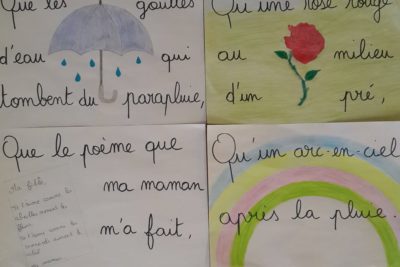 Que les gouttes
d'eau qui
tombent du parapluie,
Qu'une rose rouge
au milieu
d'un pré,
Que le poème que
ma maman
m'a fait,
Qu'un arc-en-ciel
après la pluie.